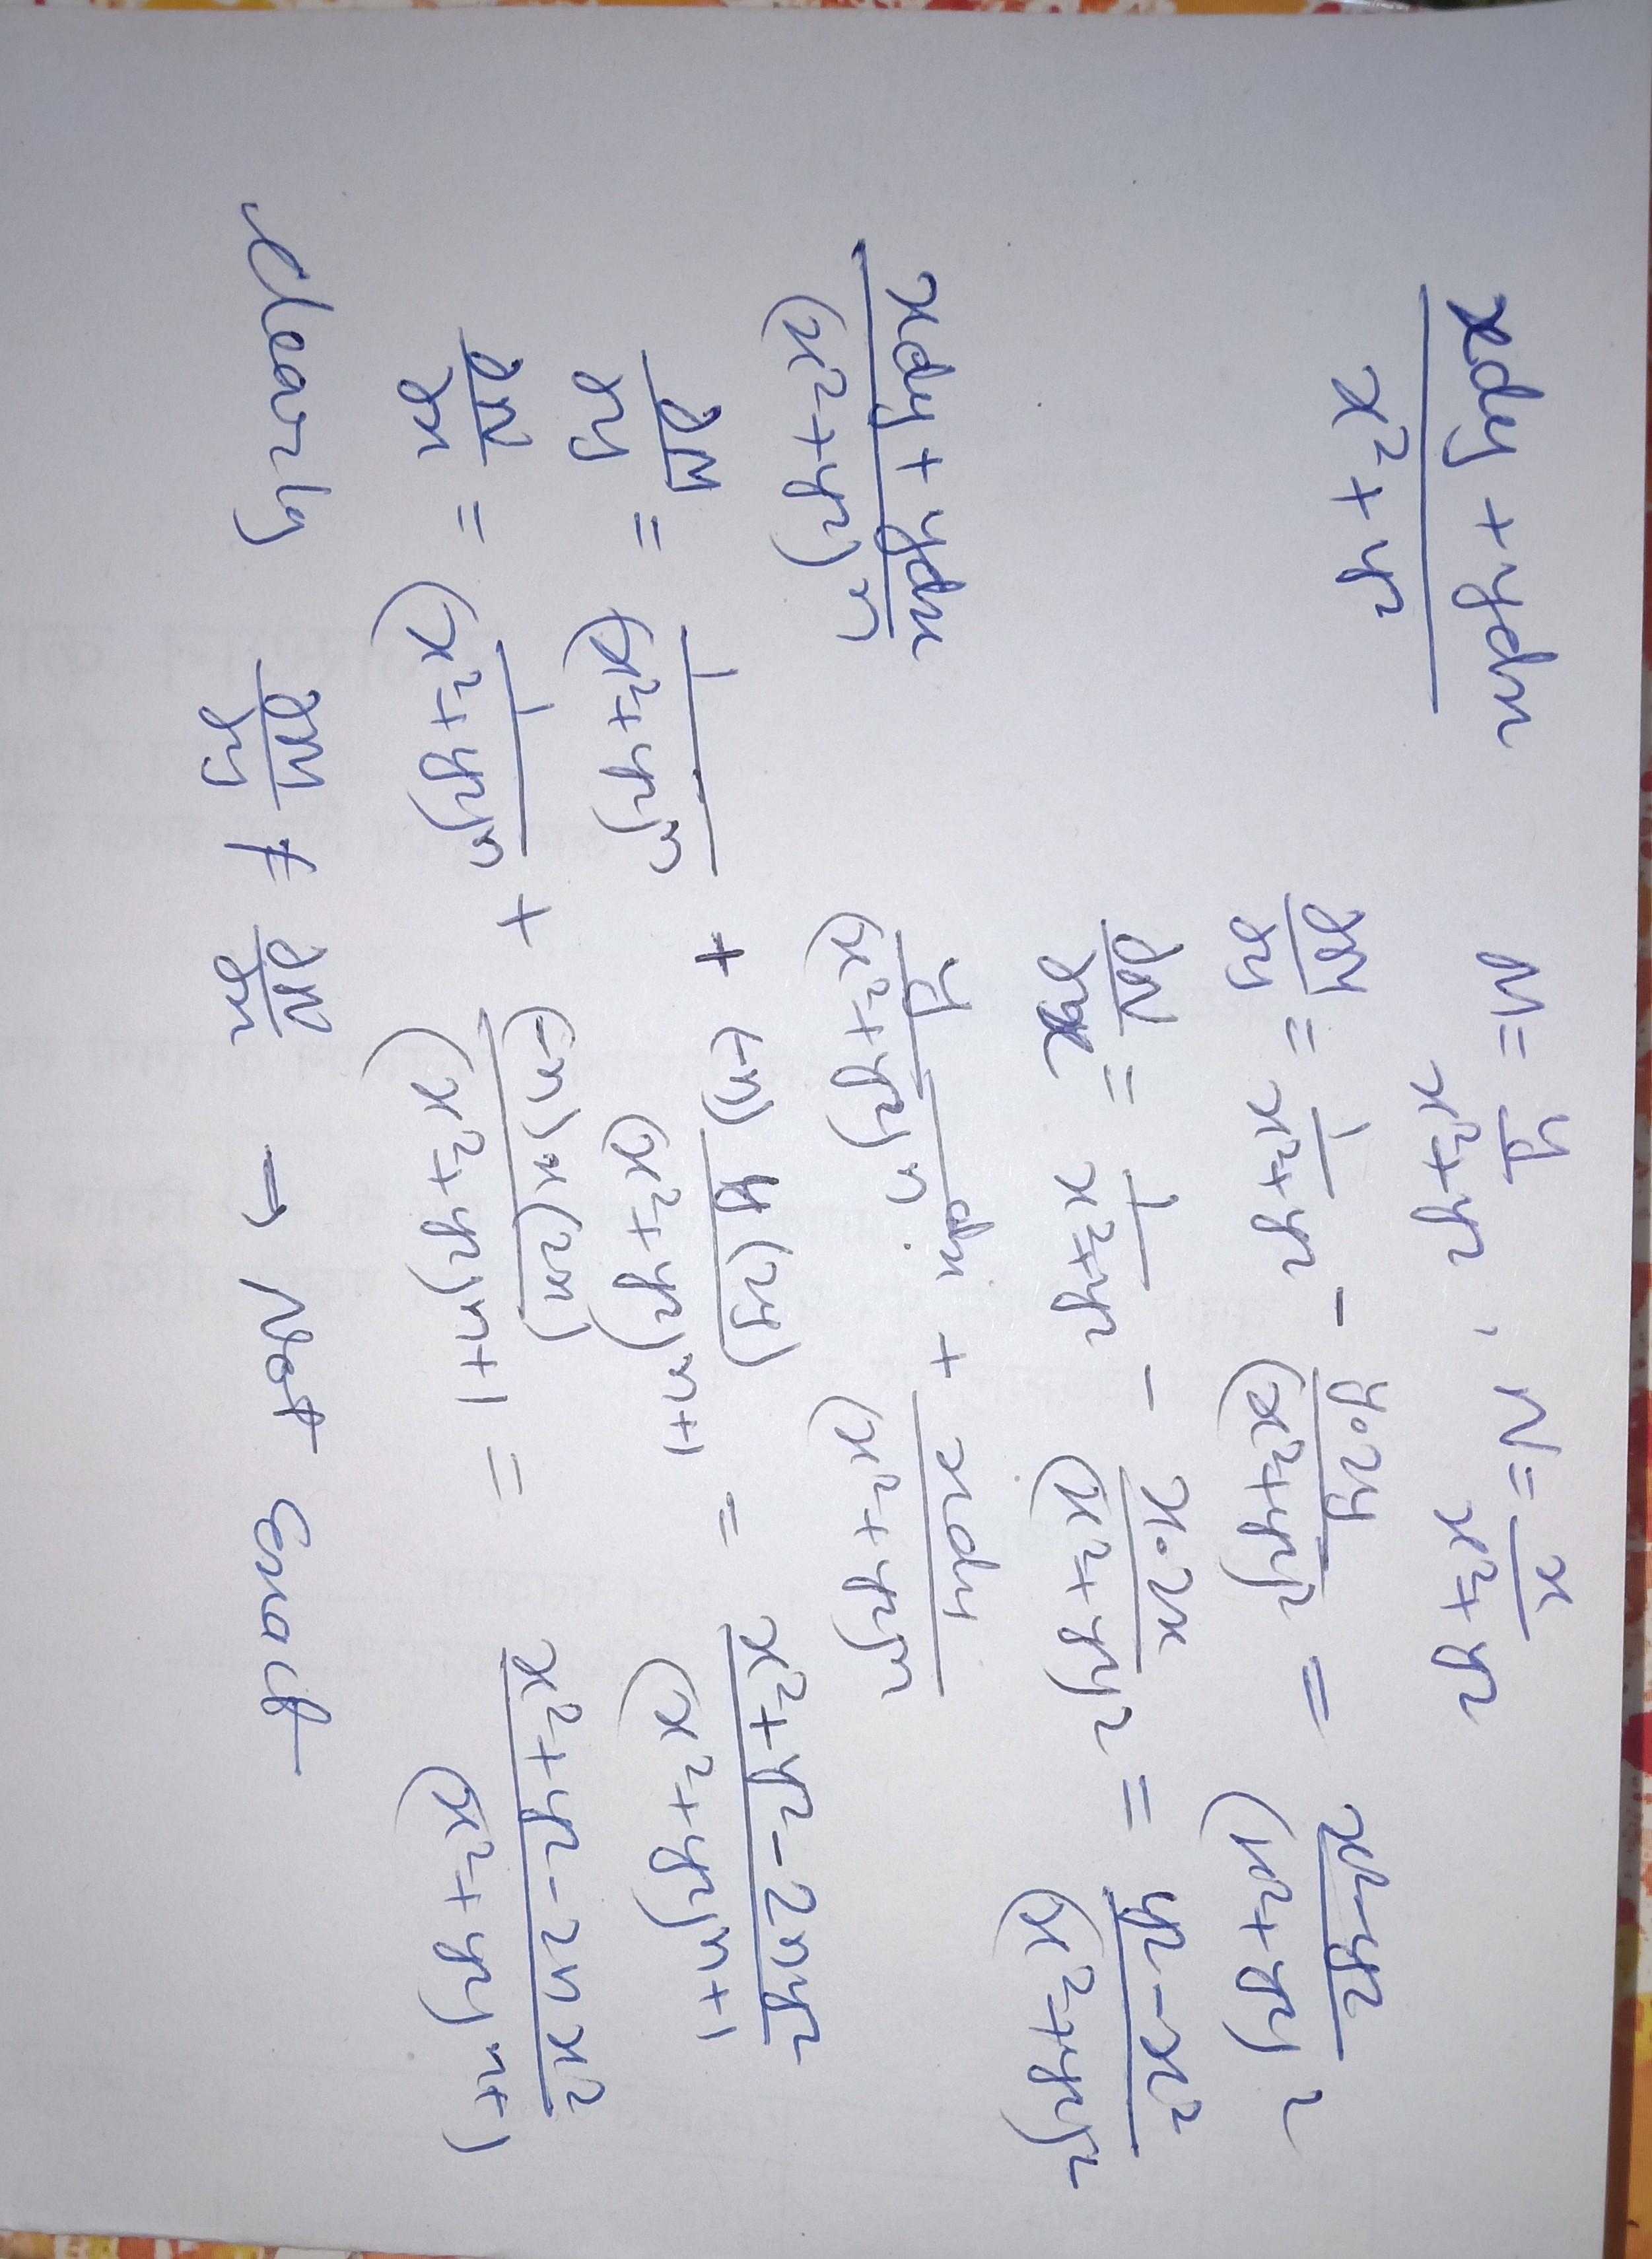 (xdy + ydx)/(x² + y²)    M = y/(x² + y²), N = x/(x² + y²)
∂M/∂y = 1/(x² + y²) - (y·2y)/(x² + y²)² = (x² - y²)/(x² + y²)²
∂N/∂x = 1/(x² + y²) - (x·2x)/(x² + y²)² = (y² - x²)/(x² + y²)²
(xdy + ydx)/(x² + y²)ⁿ    y/(x² + y²)ⁿ dx + xdy/(x² + y²)ⁿ
∂M/∂y = 1/(x² + y²)ⁿ + (-n) y(2y)/(x² + y²)ⁿ⁺¹ = (x² + y² - 2ny²)/(x² + y²)ⁿ⁺¹
∂N/∂x = 1/(x² + y²)ⁿ + (-n)x(2x)/(x² + y²)ⁿ⁺¹ = (x² + y² - 2nx²)/(x² + y²)ⁿ⁺¹
Clearly ∂M/∂y ≠ ∂N/∂x → Not Exact